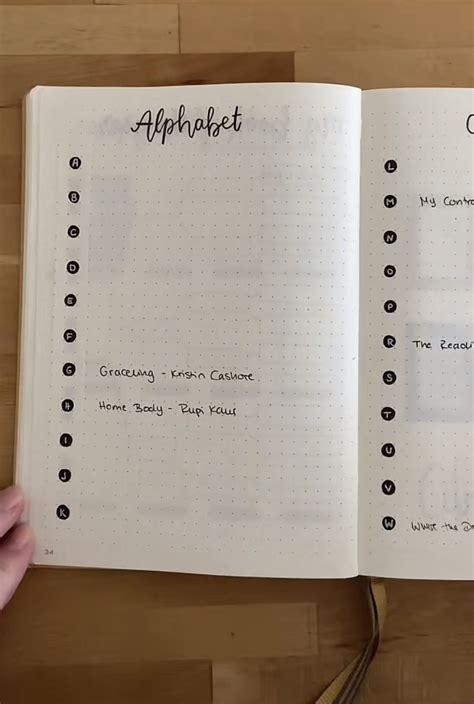 Alphabet
A
B
C
D
E
F
G Graceling - Kristin Cashore
H Home Body - Rupi Kaur
I
J
K
34
C
L
M My Contr
N
O
P
R The Readi
S
T
U
V
W What the D